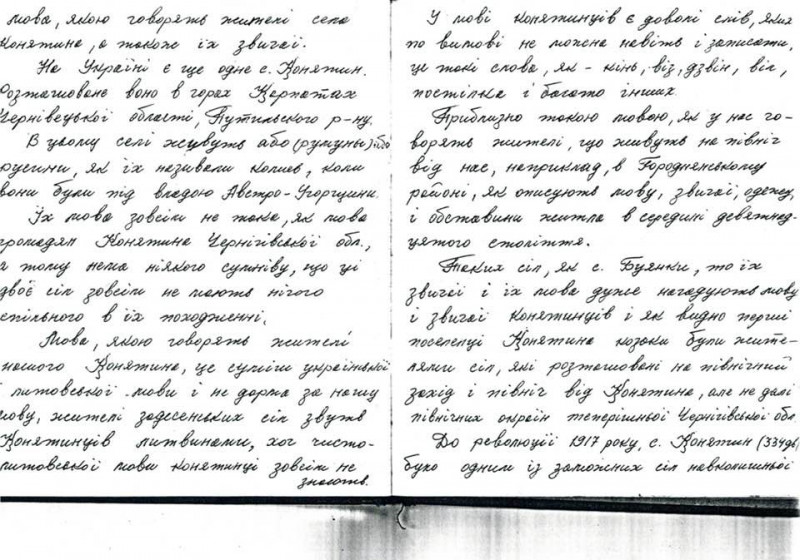 мова, якою говорять жителі села
Конятина, а також їх звичаї.
На Україні є ще одне с. Конятин.
Розташоване воно в горах Карпатах
Чернівецької області, Путильського р-ну.
В цьому селі живуть або (румуны) або
русини, як їх називали колись, коли
вони були під владою Австро-Угорщини.
Їх мова зовсім не така, як мова
громадян Конятина Чернігівської обл.,
а тому нема ніякого сумніву, що ці
двоє сіл зовсім не мають нічого
спільного в їх походженні.
Мова, якою говорять жителі
нашого Конятина, це суміш української
і литовської мови і не дарма за нашу
мову, жителі задесенських сіл звуть
Конятинців литвинами, хоч чисто-
литовської мови конятинці зовсім не
знають.
У мові конятинців є доволі слів, яких
по вимові не можна навіть і записати,
це такі слова, як - кінь, віз, дзвін, віл,
постілка і багато інших.
Приблизно такою мовою, як у нас го-
ворять жителі, що живуть на північ
від нас, наприклад, в Городнянському
районі, як описують мову, звичаї, одежу,
і обставини житла в середині девятнад-
цятого століття.
Таких сіл, як с. Буянки, то їх
звичаї і їх мова дуже нагадують мову
і звичаї конятинців і як видно перші
поселенці Конятина козаки були жите-
лями сіл, які розташовані на північний
захід і північ від Конятина, але не далі
північних окраїн теперішньої Чернігівської обл.
До революції 1917 року, с. Конятин
було одним із заможних сіл навколишньої